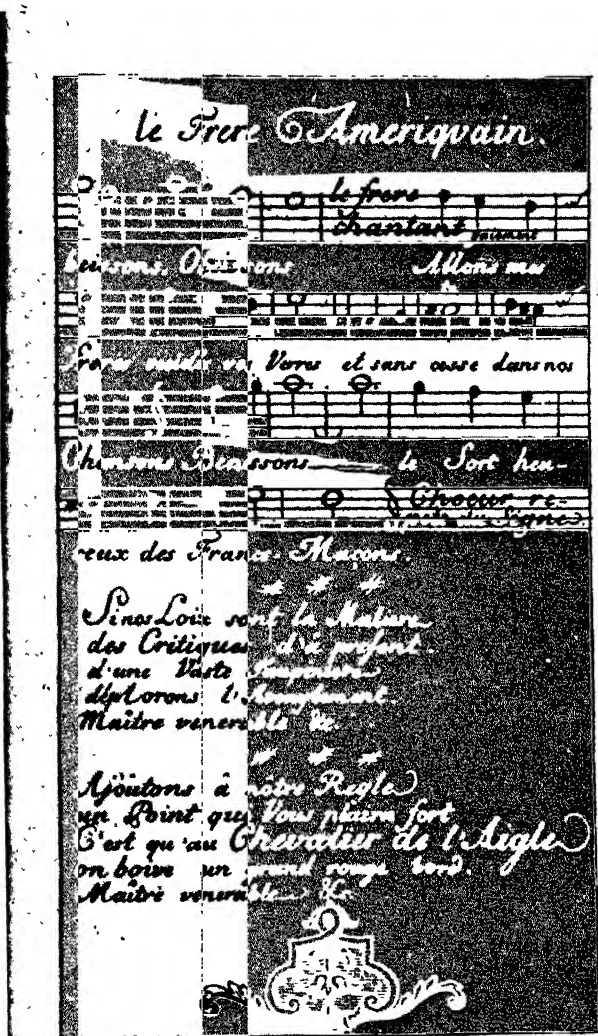 le Frere Ameriquain.
le frere
chantant gaiement
beissons, Obeissons Allons mes
freres vuidés vos Verres et sans cesse dans nos
Chansons Benissons le Sort heu-
Choeur re-
Signe.
reux des Francs-Maçons.
Si nos Loix sont la Matiere
des Critiques d'à present.
d'une Vaste
déplorons l'
Maître venerable &c.
Ajoutons à nôtre Regle
un Point qui Vous plaira fort
C'est qu'au Chevalier de l'Aigle
on boive un grand rouge bord.
Maître venerable &c.